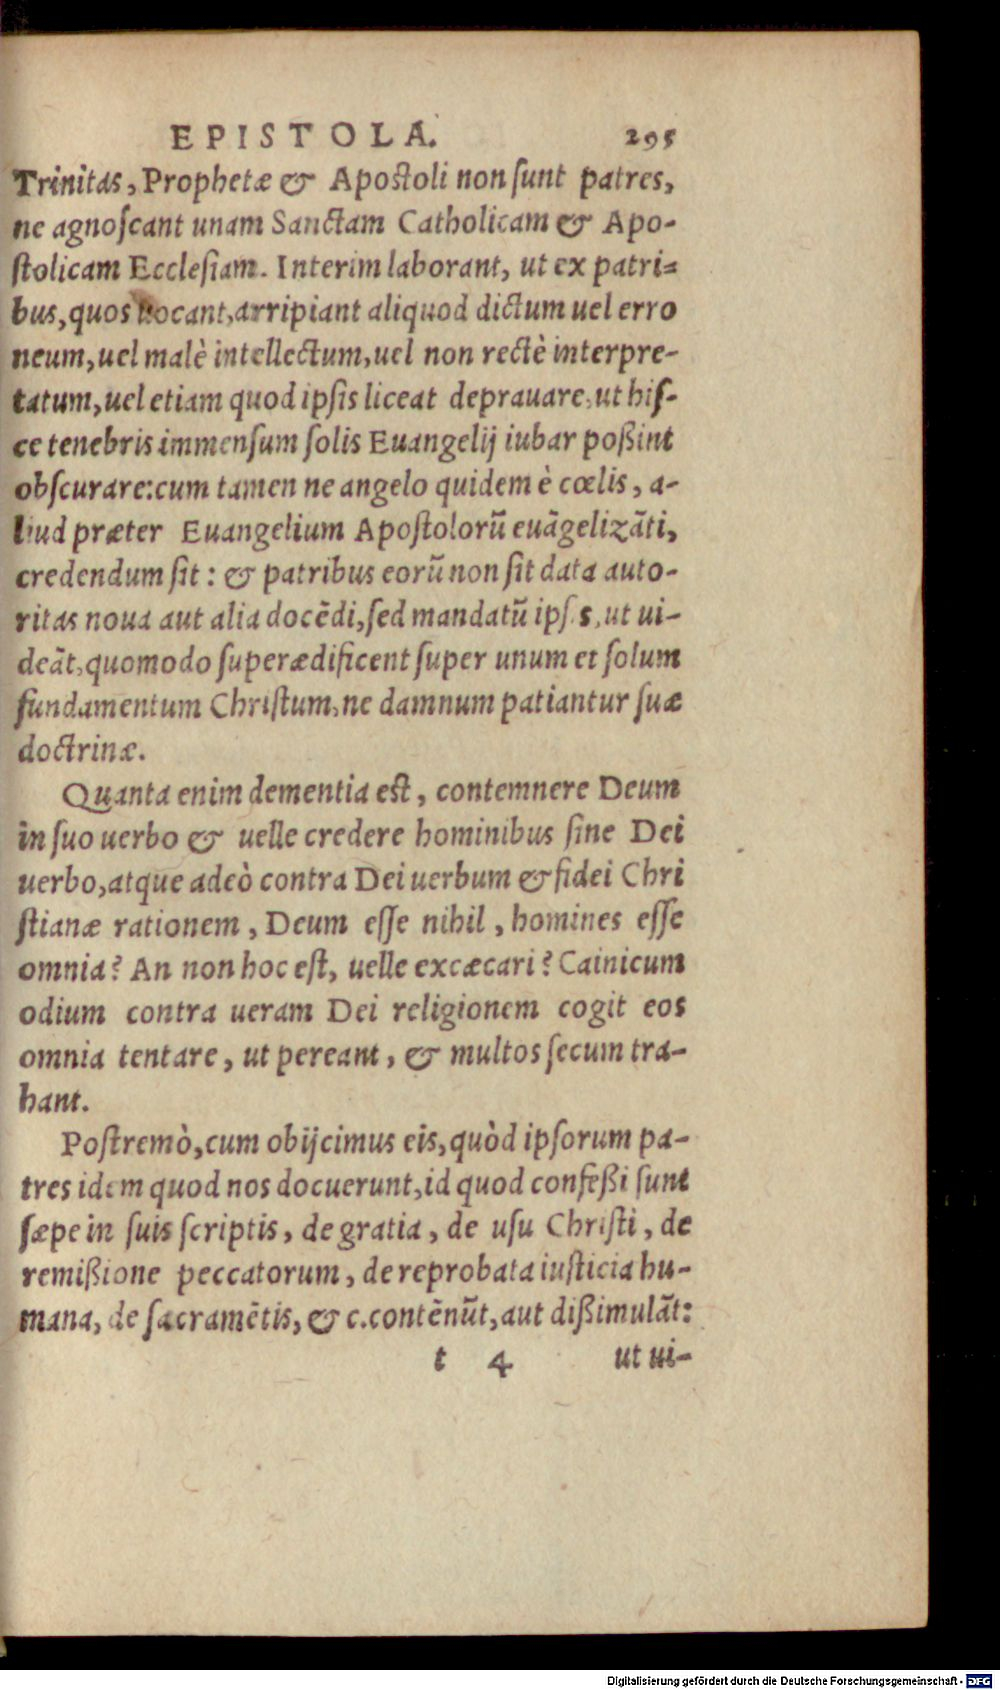 EPISTOLA. 295
Trinitas, Prophetæ & Apostoli non sunt patres,
ne agnoscant unam Sanctam Catholicam & Apo-
stolicam Ecclesiam. Interim laborant, ut ex patri=
bus, quos uocant, arripiant aliquod dictum uel erro
neum, uel malè intellectum, uel non rectè interpre-
tatum, uel etiam quod ipsis liceat deprauare, ut his-
ce tenebris immensum solis Euangelij iubar poßint
obscurare: cum tamen ne angelo quidem è cœlis, a-
liud præter Euangelium Apostolorũ euãgelizãti,
credendum sit: & patribus eorũ non sit data auto-
ritas noua aut alia docẽdi, sed mandatũ ipsis, ut ui-
deãt, quomodo superædificent super unum et solum
fundamentum Christum, ne damnum patiantur suæ
doctrinæ.
Quanta enim dementia est, contemnere Deum
in suo uerbo & uelle credere hominibus sine Dei
uerbo, atque adeò contra Dei uerbum & fidei Chri
stianæ rationem, Deum esse nihil, homines esse
omnia? An non hoc est, uelle excæcari? Cainicum
odium contra ueram Dei religionem cogit eos
omnia tentare, ut pereant, & multos secum tra-
hant.
Postremò, cum obijcimus eis, quòd ipsorum pa-
tres idem quod nos docuerunt, id quod confeßi sunt
sæpe in suis scriptis, de gratia, de usu Christi, de
remißione peccatorum, de reprobata iusticia hu-
mana, de sacramẽtis, & c. contẽnũt, aut dißimulãt:
t 4 ut ui-
Digitalisierung gefördert durch die Deutsche Forschungsgemeinschaft - DFG